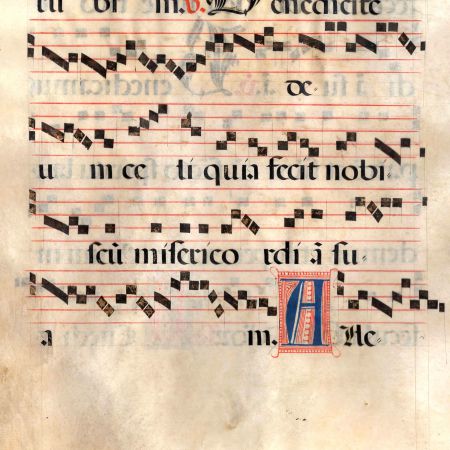 m. V. Benedicite
de-
u m ce li quia fecit nobi-
scū miserico rdi ā su-
a m. A Ne-